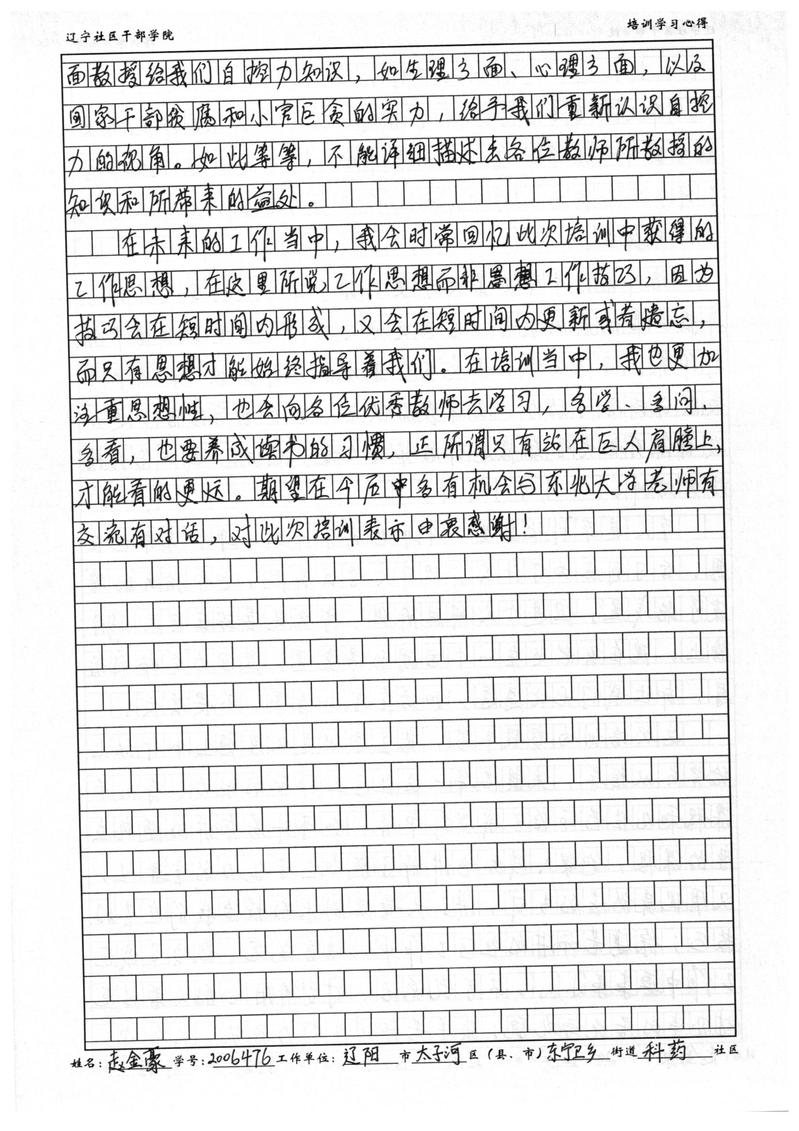 辽宁社区干部学院 培训学习心得
面教授给我们自控力知识，如生理方面、心理方面，以及
国家干部贪腐和小官巨贪的实力，给予我们重新认识自控
力的视角。如此等等，不能详细描述去各位教师所教授的
知识和所带来的益处。
在未来的工作当中，我会时常回忆此次培训中获得的
工作思想，在这里所说工作思想而非思想工作技巧，因为
技巧会在短时间内形成，又会在短时间内更新或者遗忘，
而只有思想才能始终指导着我们。在培训当中，我也更加
注重思想性，也会向各位优秀教师去学习，多学、多问、
多看，也要养成读书的习惯，正所谓只有站在巨人肩膀上，
才能看的更远。期望在今后中多有机会与东北大学老师有
交流有对话，对此次培训表示中衷感谢！
姓名：赵金豪 学号：2006476 工作单位：辽阳 市 太子河 区（县、市）东宁卫乡 街道 科药 社区